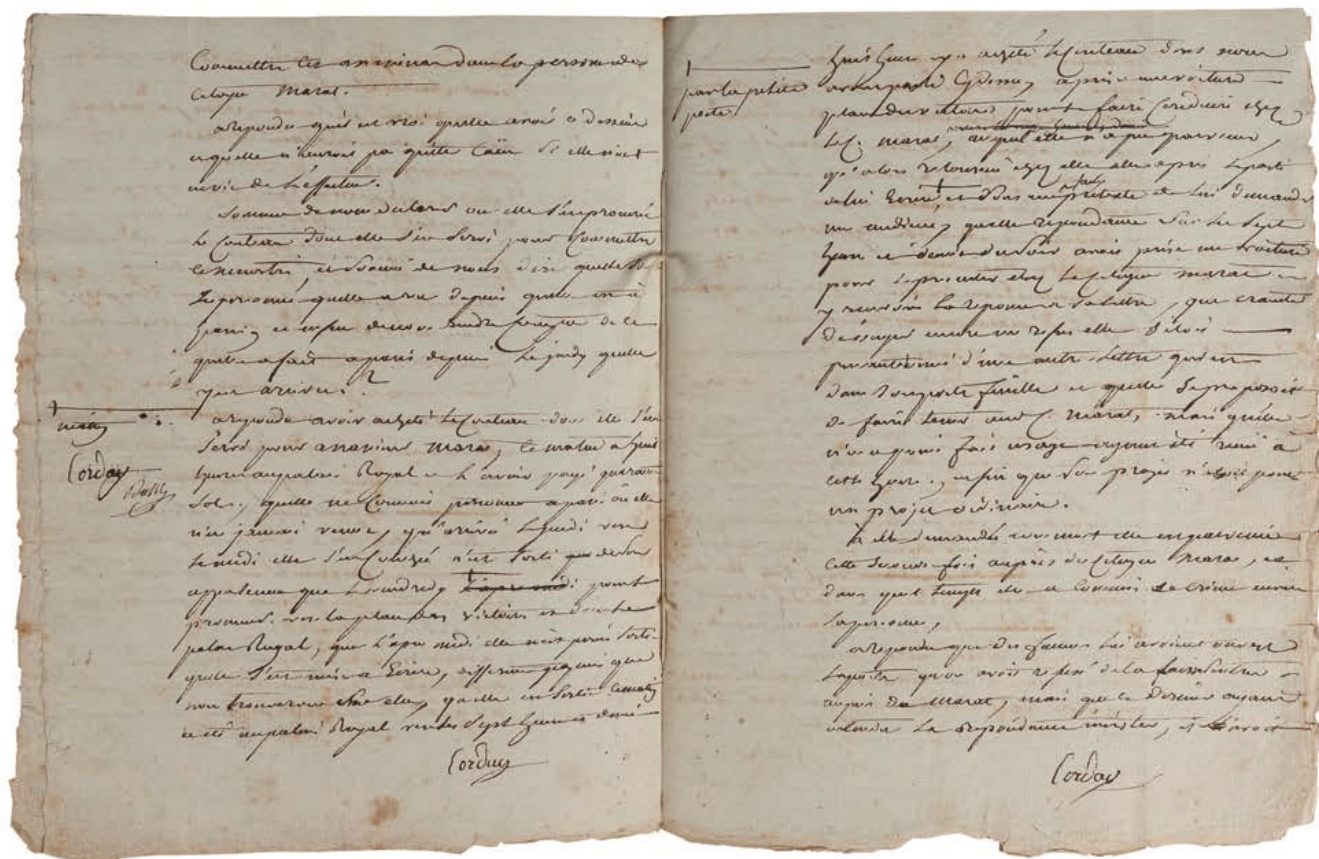 Commettre cet assassinat dans la personne du
Citoyen Marat.
a repondu qu'il est vrai qu'elle avoit ce dessein
et qu'elle n'auroit pas quitté Caën si elle n'eut
envie de l'effectuer.
Sommée de nous déclarer où elle s'est procuré
Le Couteau dont elle s'est Servi pour Commettre
ce meurtre, et Sommé de nous dire quelles
personnes qu'elle a vu depuis qu'elle est à
paris, et enfin de nous rendre compte de ce
qu'elle a fait a paris depuis le jeudy qu'elle
y est arrivée?
a repondu avoir acheté le Couteau dont elle s'est
Servi pour assassiner Marat, ce matin a huit
heures au palais Royal et l'avoir payé quarante
Sols, qu'elle ne Connoit personne a paris où elle
n'est jamais venue, qu'arrivé le jeudi vers
le midi elle s'est Couchée n'est sorti de son
appartement que le vendredy matin pour se
promener vers la place des Victoires et dans le
palais Royal, que l'apres midi elle n'est point sorti
qu'elle s'est mise à Ecrire, differens papiers que
nous trouverons sur elle, qu'elle est sortie ce matin
a été au palais Royal vers les Sept heures et demie
matin
Corday
Corday
par la petite
poste
huit heures y a acheté le Couteau dont nous
avons parlé Cydessus, a pris une voiture
place des victoires pour se faire Conduire chez
le C. Marat, auquel elle n'a pu parvenir,
qu'alors retourné chez elle elle a pris le parti
de lui Ecrire, et sous un faux pretexte de lui demander
une audience, qu'elle repondante Sur les Sept
heures et demie du Soir avoit prise une voiture
pour se presenter chez le Citoyen Marat et
y recevoir la reponse a sa lettre, que crainte
d'essuyer encore un refus elle s'étoit
precautionné d'une autre lettre qui est
dans son porte feuille et qu'elle se proposoit
de faire tenir au C. Marat, mais qu'elle
n'en a point fait usage ayant été recu à
cette heure, enfin que Son projet n'étoit point
un projet ordinaire.
à elle demandé comment elle est parvenue
cette Seconde fois auprès du Citoyen Marat, et
dans quel temps elle a Commis le Crime envers
sa personne,
a repondu que des femmes lui avoient ouvert
la porte qu'on avoit refusé de la faire penetrer
aupres de Marat, mais que ce dernier ayant
entendu la repondante insister, il avoit
Corday